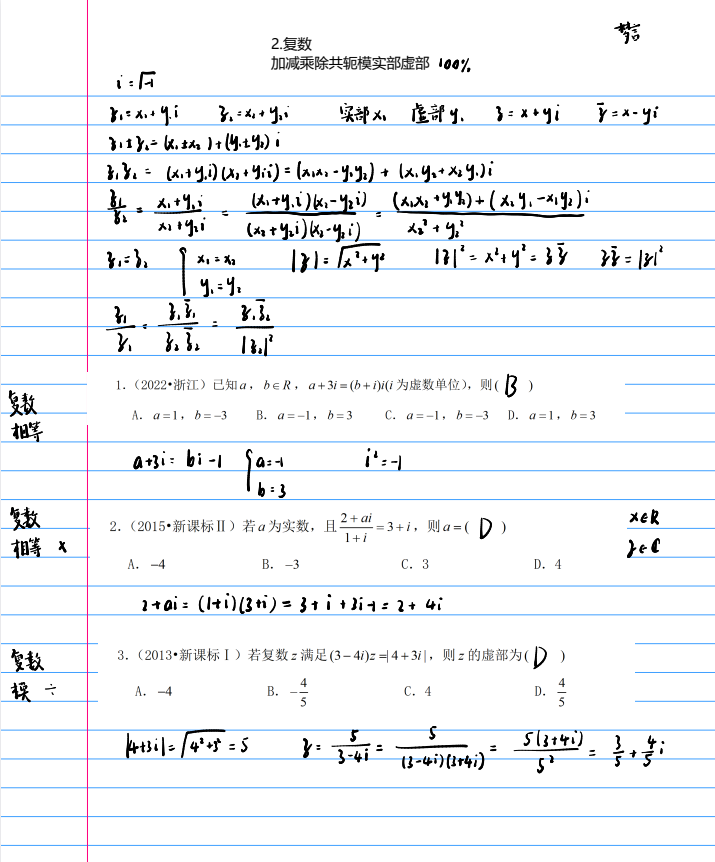 2.复数
加减乘除共轭模实部虚部 100%
i=√-1
z₁=x₁+y₁i z₂=x₂+y₂i 实部x₁ 虚部y₁ z=x+yi z̄=x-yi
z₁±z₂=(x₁±x₂)+(y₁±y₂)i
z₁z₂=(x₁+y₁i)(x₂+y₂i)=(x₁x₂-y₁y₂)+(x₁y₂+x₂y₁)i
z₁/z₂=(x₁+y₁i)/(x₂+y₂i)=(x₁+y₁i)(x₂-y₂i)/(x₂+y₂i)(x₂-y₂i)=((x₁x₂+y₁y₂)+(x₂y₁-x₁y₂)i)/(x₂²+y₂²)
z₁=z₂ { x₁=x₂ y₁=y₂ |z|=√(x²+y²) |z|²=x²+y²=zz̄ zz̄=|z|²
z₁/z₁=z₁z̄₁/z₂z̄₂=z₁z̄₂/|z₂|²
复数
相等
1.(2022•浙江)已知a,b∈R,a+3i=(b+i)i(i为虚数单位),则( B )
A. a=1,b=-3 B. a=-1,b=3 C. a=-1,b=-3 D. a=1,b=3
a+3i=bi-1 { a=-1 b=3 i²=-1
复数
相等 x
2.(2015•新课标Ⅱ)若a为实数,且(2+ai)/(1+i)=3+i,则a=( D )
x∈R
z∈C
A. -4 B. -3 C. 3 D. 4
2+ai=(1+i)(3+i)=3+i+3i-1=2+4i
复数
模 ÷
3.(2013•新课标Ⅰ)若复数z满足(3-4i)z=|4+3i|,则z的虚部为( D )
A. -4 B. -4/5 C. 4 D. 4/5
|4+3i|=√(4²+3²)=5 z=5/(3-4i)=5/(3-4i)(3+4i)=5(3+4i)/5²=3/5+4/5i